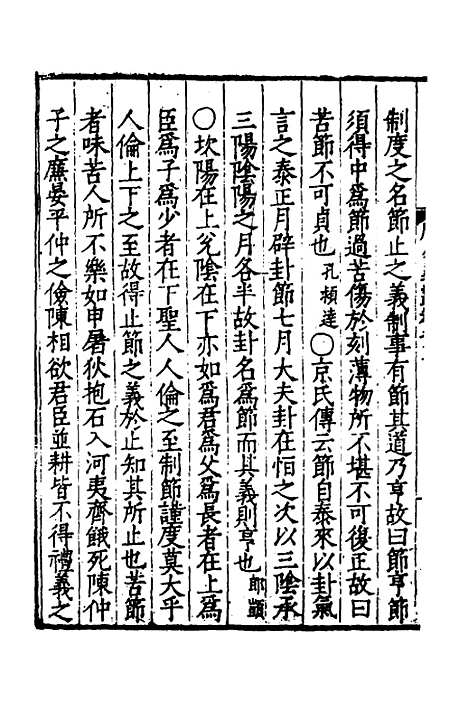 制度之名節止之義制事有節其道乃亨故曰節亨節
須得中爲節過苦傷於刻薄物所不堪不可復正故曰
苦節不可貞也孔頴達〇京氏傳云節自泰來以卦氣
言之泰正月辟卦節七月大夫卦在恒之次以三陰承
三陽陰陽之月各半故卦名爲節而其義則亨也郎顗
〇坎陽在上兊陰在下亦如爲君爲父爲長者在上爲
臣爲子爲少者在下聖人人倫之至制節謹度莫大乎
人倫上下之至故得止節之義於止知其所止也苦節
者味苦人所不樂如申屠狄抱石入河夷齊餓死陳仲
子之廉晏平仲之儉陳相欲君臣並耕皆不得禮義之